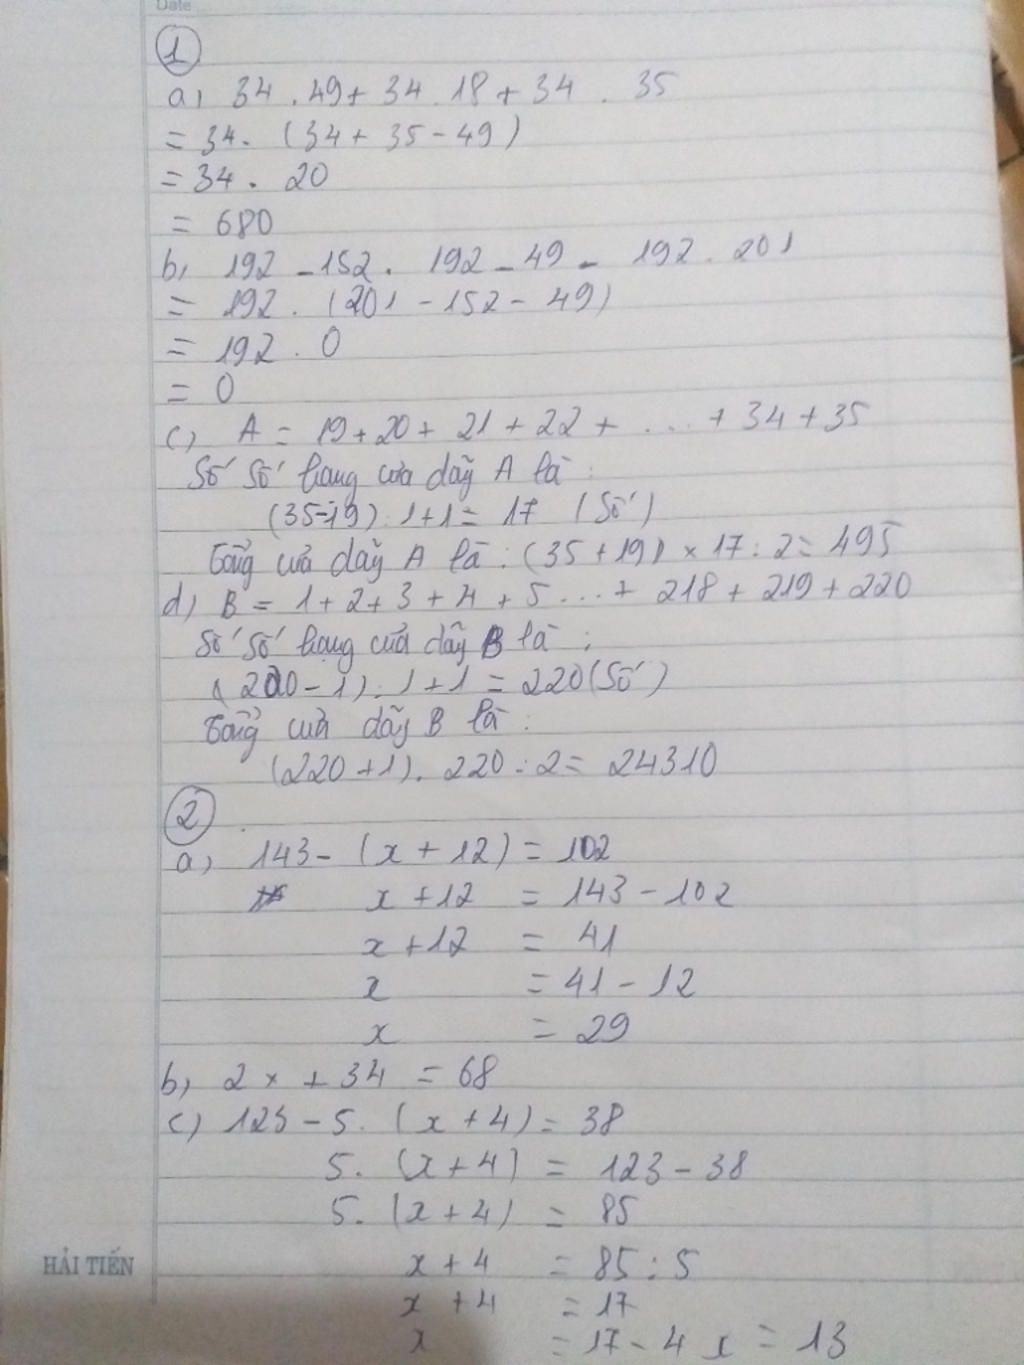 Date
1
a) 34 . 49 + 34 . 18 + 34 . 35
= 34 . (34 + 35 - 49)
= 34 . 20
= 680
b) 192 - 152 . 192 - 49 - 192 . 201
= 192 . (201 - 152 - 49)
= 192 . 0
= 0
c) A = 19 + 20 + 21 + 22 + ... + 34 + 35
Số số hạng của dãy A là :
(35-19) : 1+1 = 17 (số)
Tổng của dãy A là : (35 + 19) × 17 : 2 = 495
d) B = 1 + 2 + 3 + 4 + 5 ... + 218 + 219 + 220
Số số hạng của dãy B là :
(220 - 1) : 1 + 1 = 220 (số)
Tổng của dãy B là :
(220 + 1) . 220 : 2 = 24310
2
a) 143 - (x + 12) = 102
x + 12 = 143 - 102
x + 12 = 41
x = 41 - 12
x = 29
b) 2x + 34 = 68
c) 123 - 5 . (x + 4) = 38
5 . (x + 4) = 123 - 38
5 . (x + 4) = 85
HẢI TIẾN
x + 4 = 85 : 5
x + 4 = 17
x = 17 - 4 x = 13